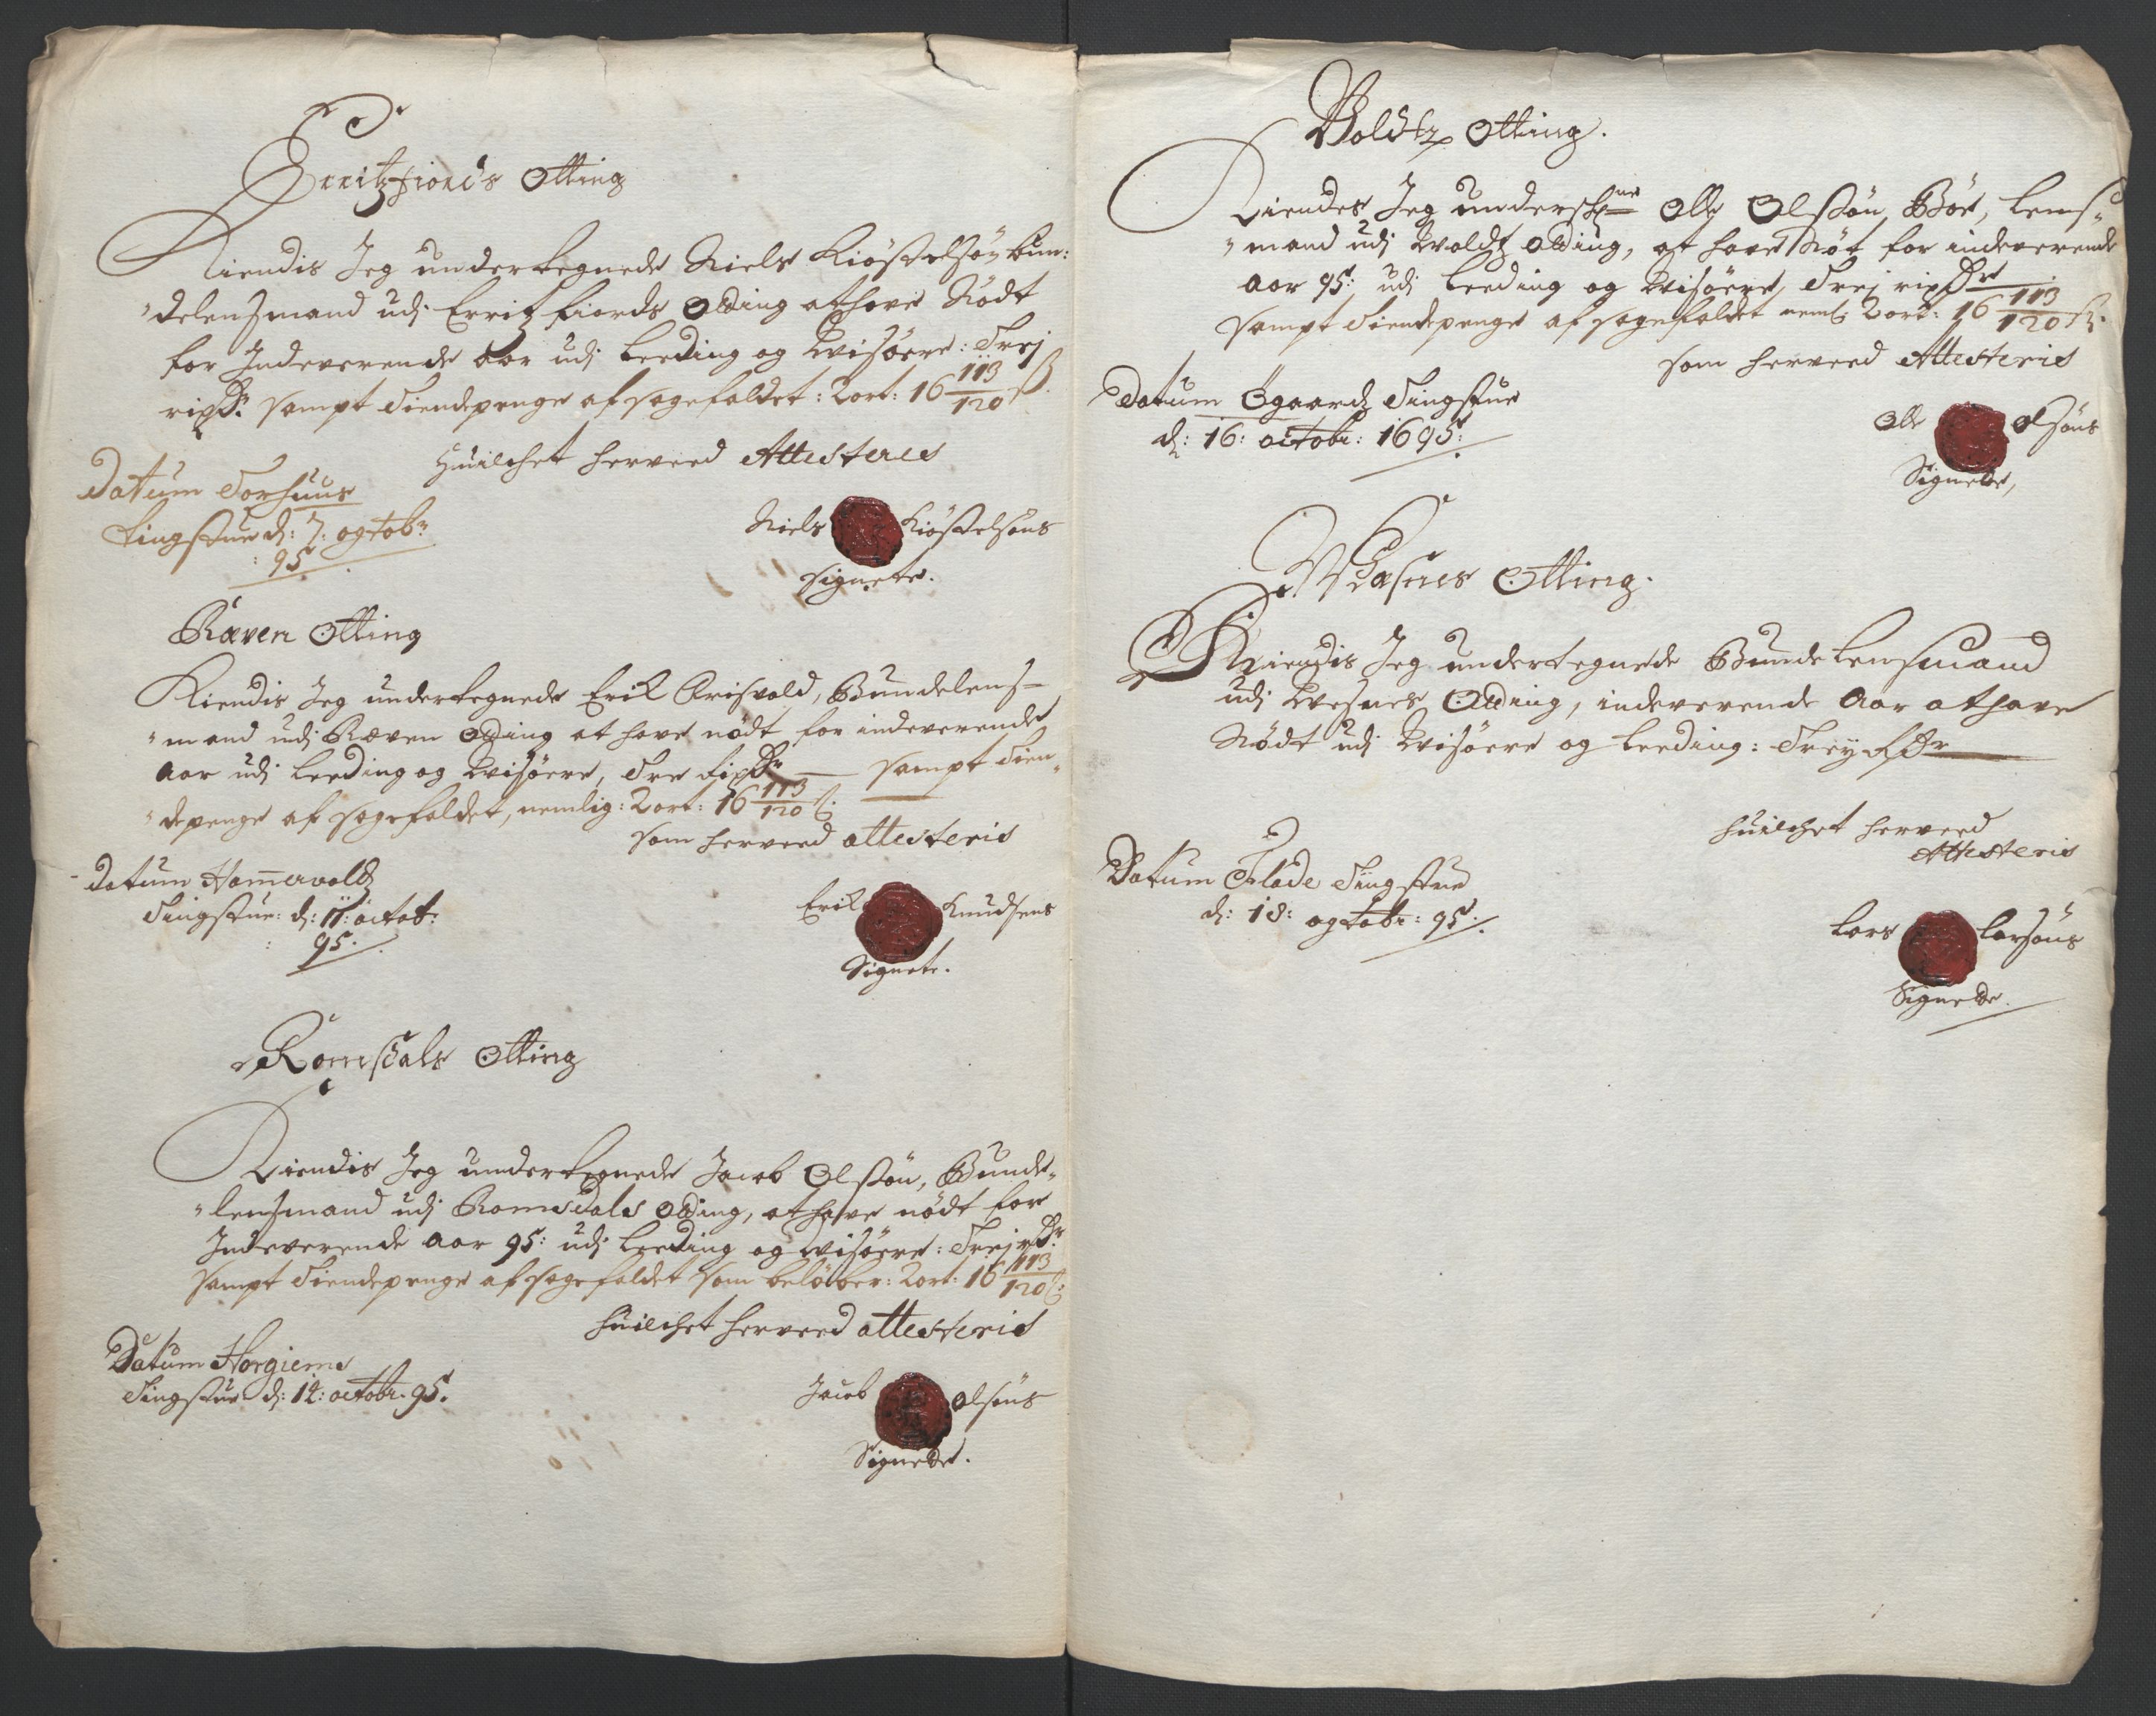 Erritzfiords Otting
Kiendis Jeg undertegnede Niels Kiøstelsøn bun:
"delensmand udj Erritzfiords Otting at have Nødt
for Indeverende Aar udj Leeding og Wisøere: Trej
rixdr: sampt Tiendepenge af sagefaldet: 2 ort: 16 113/120 ß
Huilchet herved Attesteres
Datum Torhuus
tingstue d: 7: ogtobr:
: 95
Niels Kiøstelsøns
Signete.
Ræven Otting
Kiendis Jeg undertegnede Erik Orisvold, Bundelens-
"mand udj Ræven Otting at have nødt for indeverende
Aar udj Leeding og Wisøere, Tre Rixdr sampt Tien"
"depenge af sagefaldet, nemlig: 2 ort: 16 113/120 ß.
som herved attesteris
Datum Hammervolds
Tingstue: d: 11: octob:
: 95.
Erik Knudsens
Signete.
Romsdals Otting
Kiendis Jeg undertegnede Jacob Olsøn, Bunde"
"lensmand udj Romsdals Otting, at have nødt for
Indeverende Aar 95: udj Leeding og Wisøere: Trej rdr
sampt Tiendepenge af sagefaldet som beløber: 2 ort: 16 113/120 ß:
huilchet herved attesteris
Datum Horgiems
Tingstue d: 14: octobr. 95.
Jacob Olsøns
Signedt.
Woldtz Otting.
Kiendes Jeg underschrne Olle Olsøn Bøe, Lens"
"mand udj Woldtz Otting, at have Nøt for indeverende
Aar 95: udj Leeding og Wisøere, Trej rixdr
sampt Tiendepenge af sagefaldet neml: 2 ort: 16 113/120 ß.
som herved Attesteris
Datum Øgaardz Tingstue
d: 16: octobr: 1695:
Olle Olsøns
Signete,
Wæsnes Otting.
Kiendis Jeg undertegnede Bundelensmand
udj Wesnes Otting, indeverende Aar at have
Nødt udj Wisøere og Leeding: Trey Rdr
huilchet herved
Attesteris
Datum Flade Tingstue
d: 18: ogtobr: 95.
Lars Larsøns
Signedt.